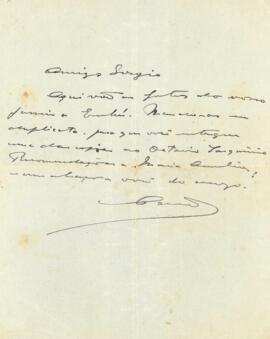 Amigo Sergio
Aqui vão as fotos do nosso
passeio a Embú. Mando-as em
duplicata, para que você entregue
uma das copias ao Octavio Tarquinio
Recomendações a Maria Amelia,
e um abraço do amigo.